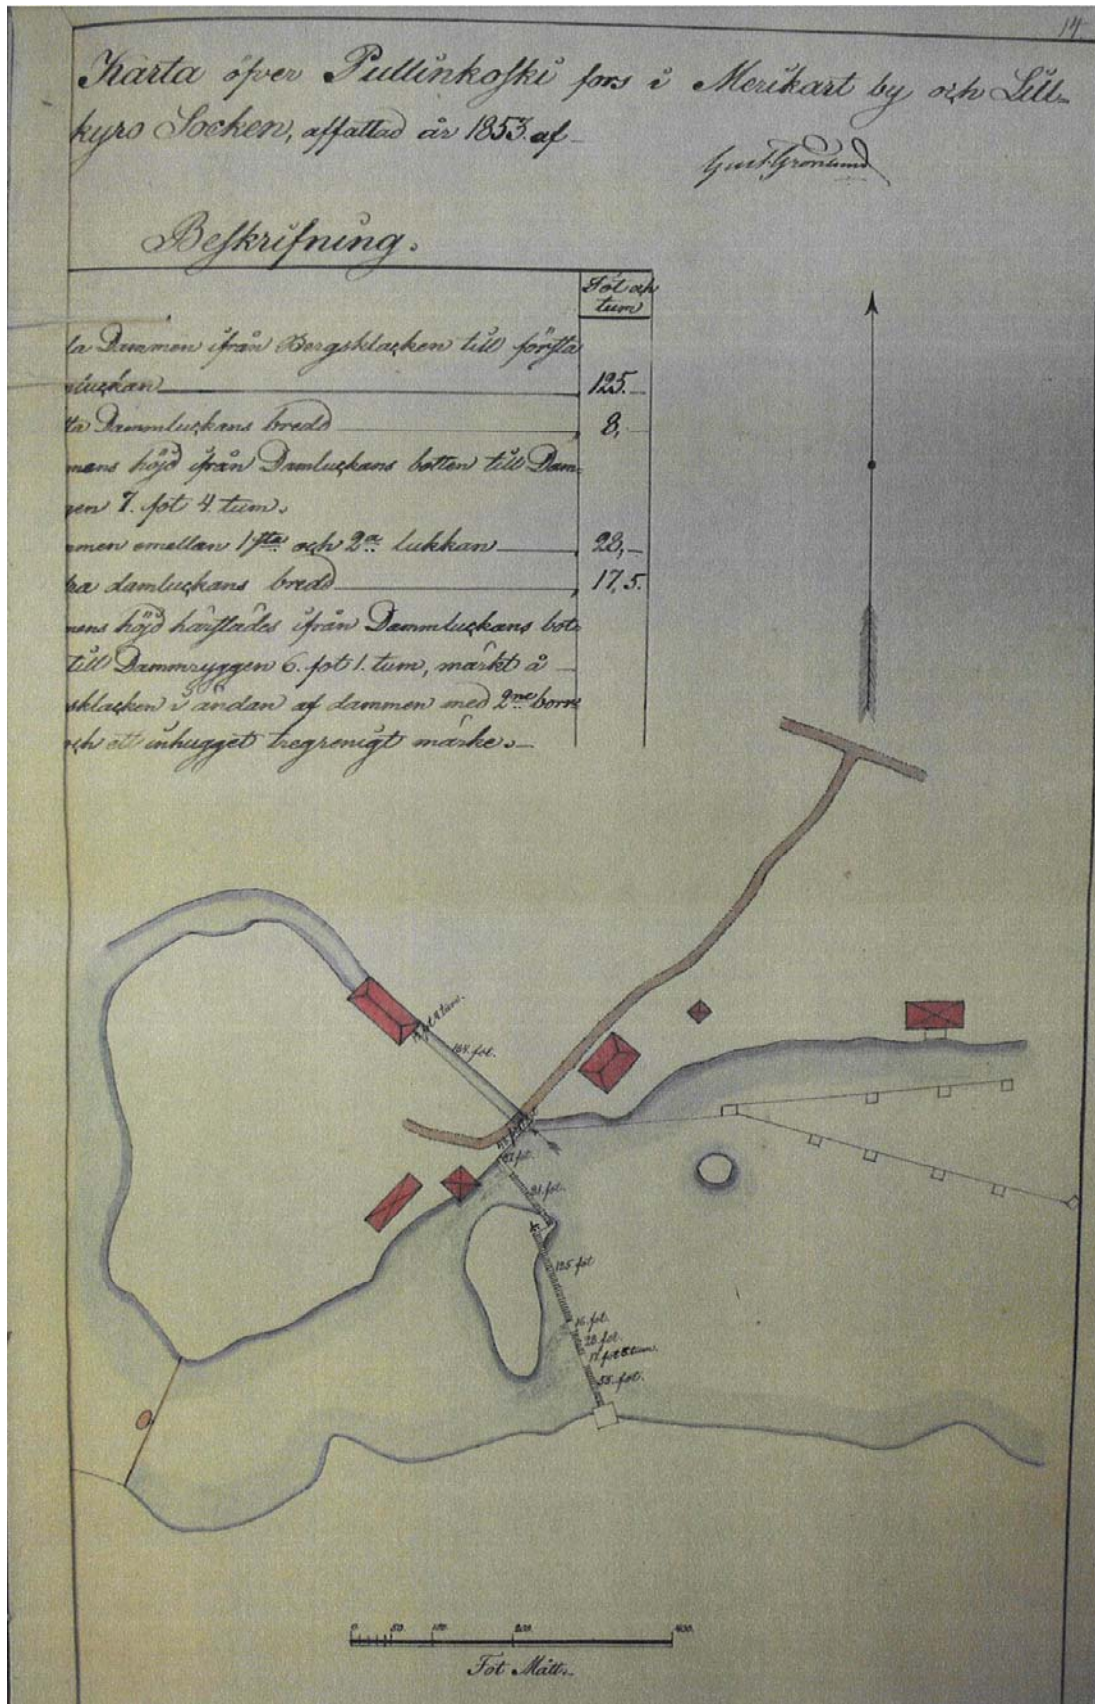 14
Karta öfver Pullinkoski fors i Merikart by och Lill-
kyro Socken, affattad år 1853 af
Gust Grönlund
Beskrifning.
Fot och
tum
la Dammen ifrån Bergsklacken till första
luckan 125.
ta Dammluckans bredd 8,
mens höjd ifrån Damluckans botten till Dam-
gen 7. fot 4. tum.
mmen emellan 1sta och 2a lukkan 28,
ra damluckans bredd 17,5.
mens höjd härstädes ifrån Dammluckans bot-
till Dammryggen 6. fot 1. tum, märkt å
sklacken i ändan af dammen med 2ne borr
och ett inhugget tregrenigt märke.
164. fot.
21. fot.
125 fot
16. fot.
28. fot.
17 fot 5 tum.
55. fot.
0. 50. 100. 200. 400.
Fot Mått.